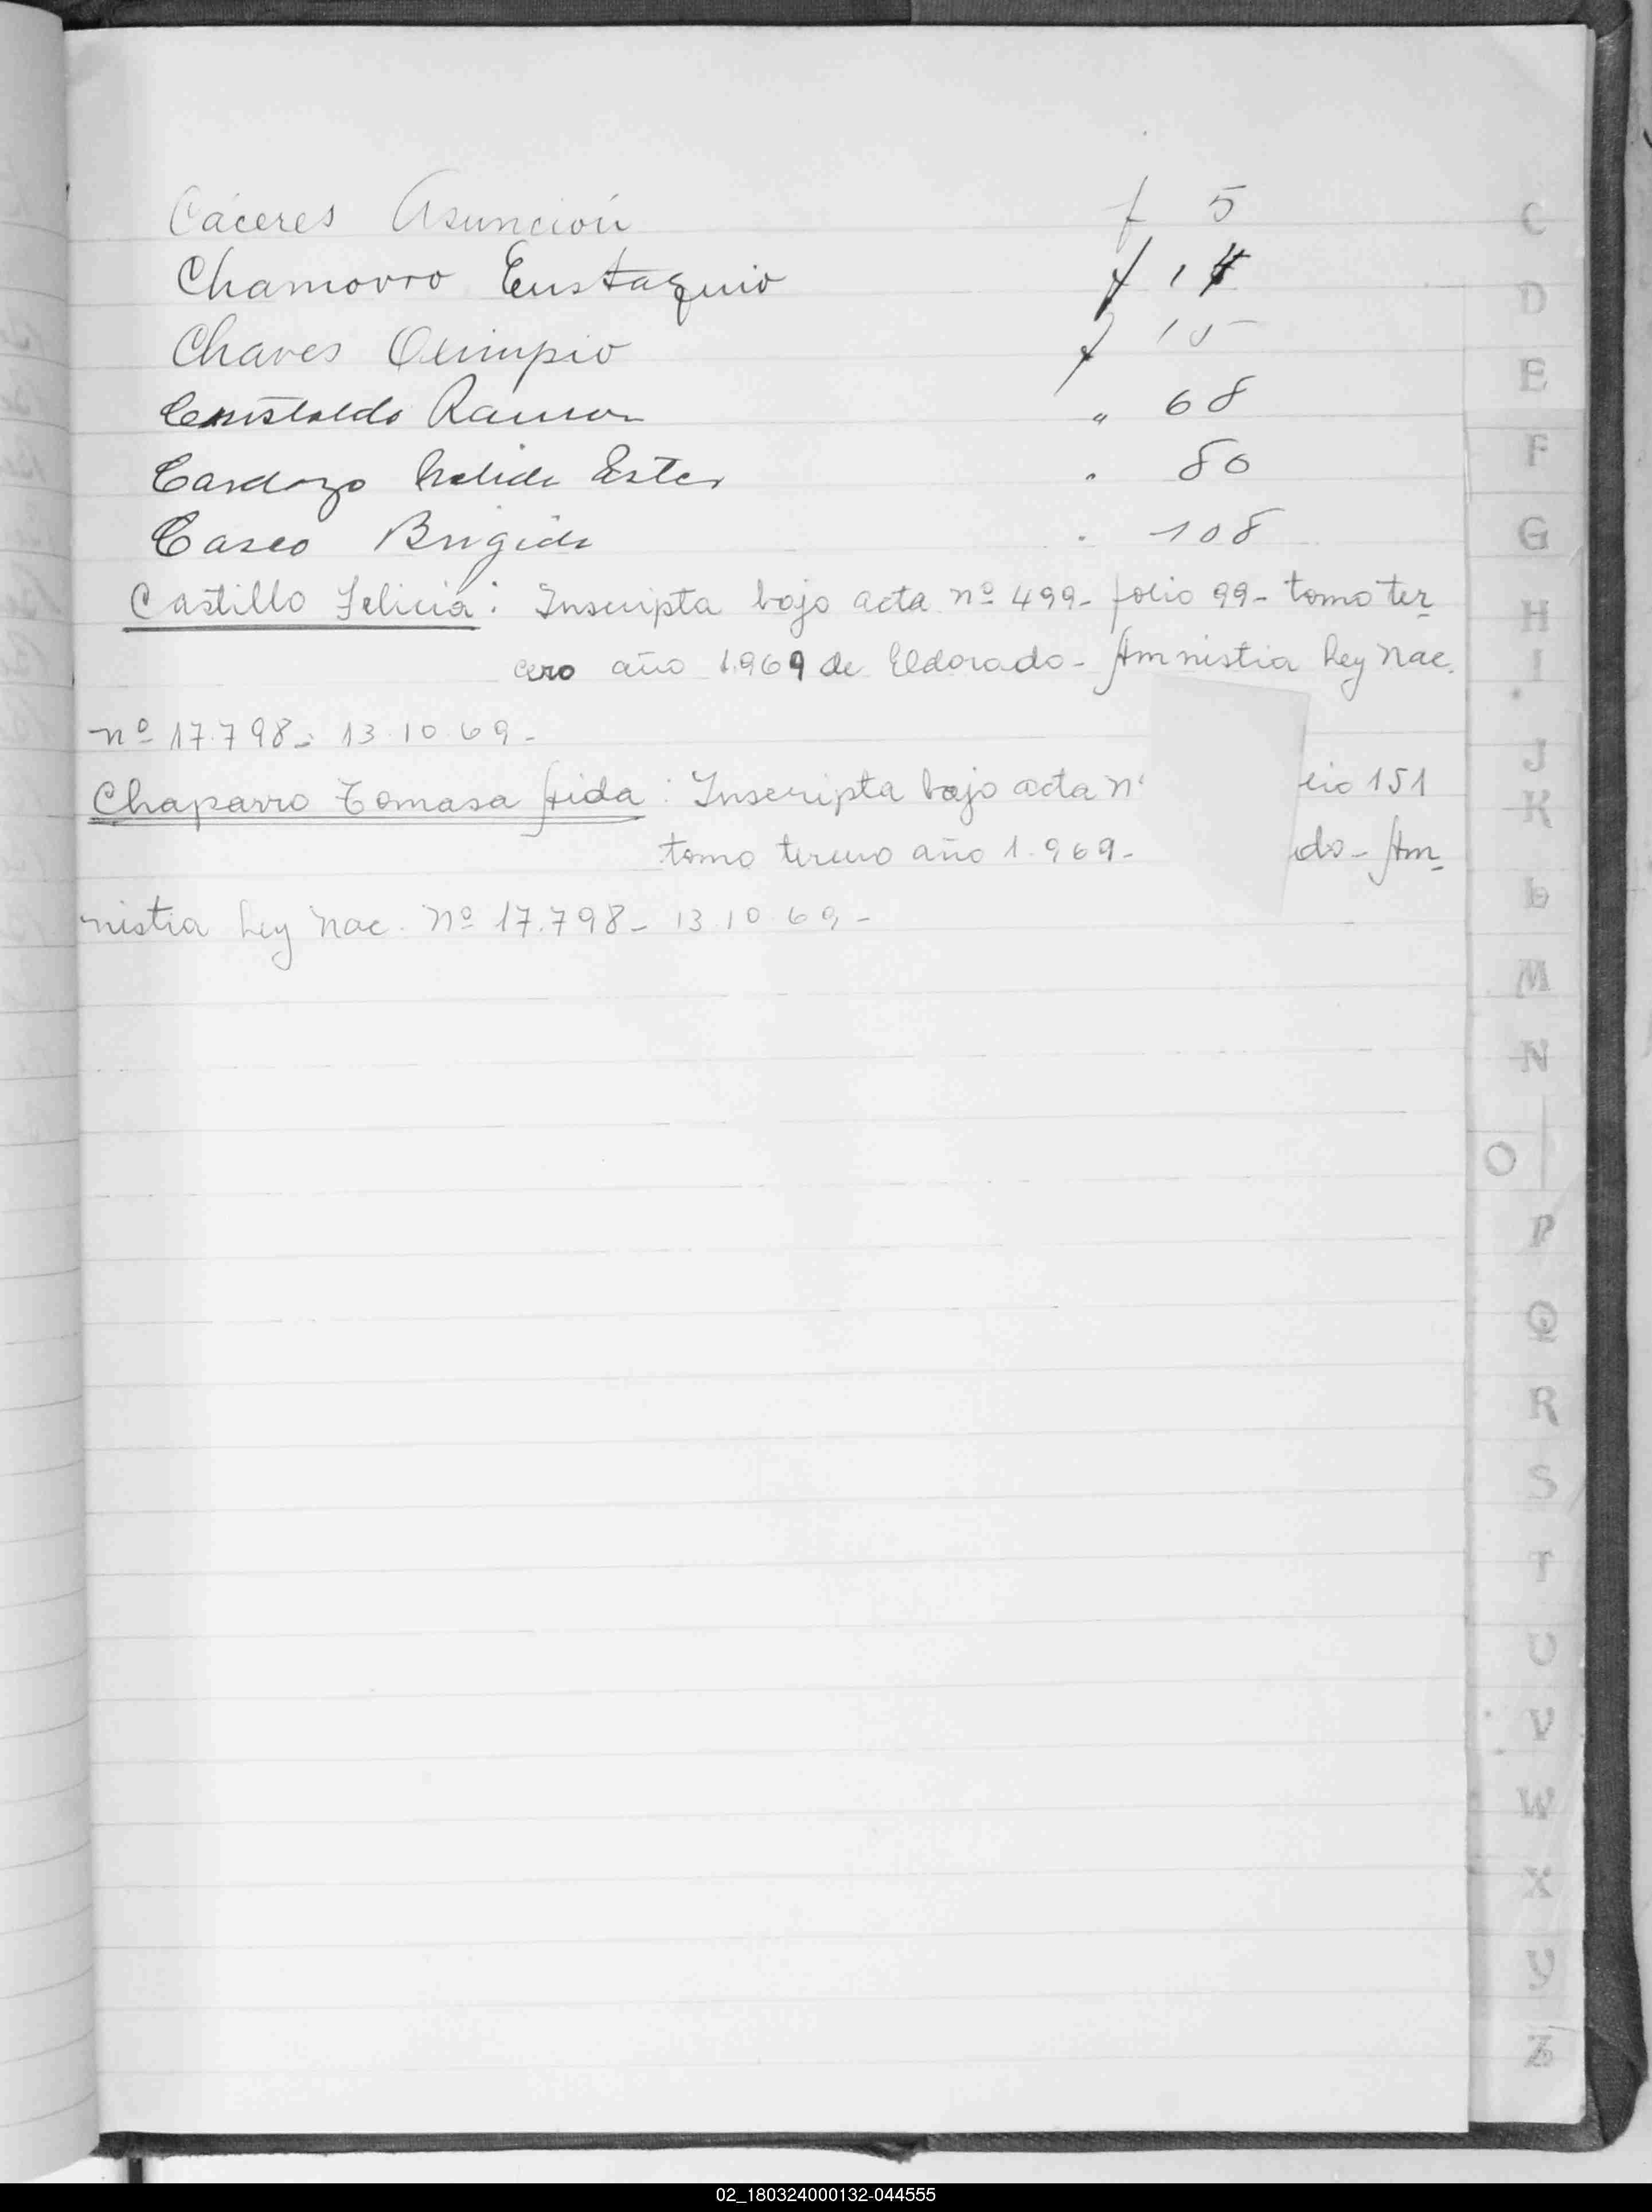 Cáceres Asunción f 5
Chamorro Eustaquio f 14
Chaves Olimpio f 15
Ramon " 68
Cardozo Nelida Ester " 80
Casco Brigida " 108
Castillo Felicia: Inscripta bajo acta nº 499- folio 99- tomo ter
cero año 1.969 de Eldorado- Amnistia Ley Nac.
nº 17.798- 13.10.69-
Chaparro Tomasa Aida: Inscripta bajo acta nº lio 151
tomo tercero año 1.969- do- Am
nistia Ley Nac. Nº 17.798- 13.10.69-
C
D
E
F
G
H
I
J
K
L
M
N
O
P
Q
R
S
T
U
V
W
X
Y
Z
02_180324000132-044555